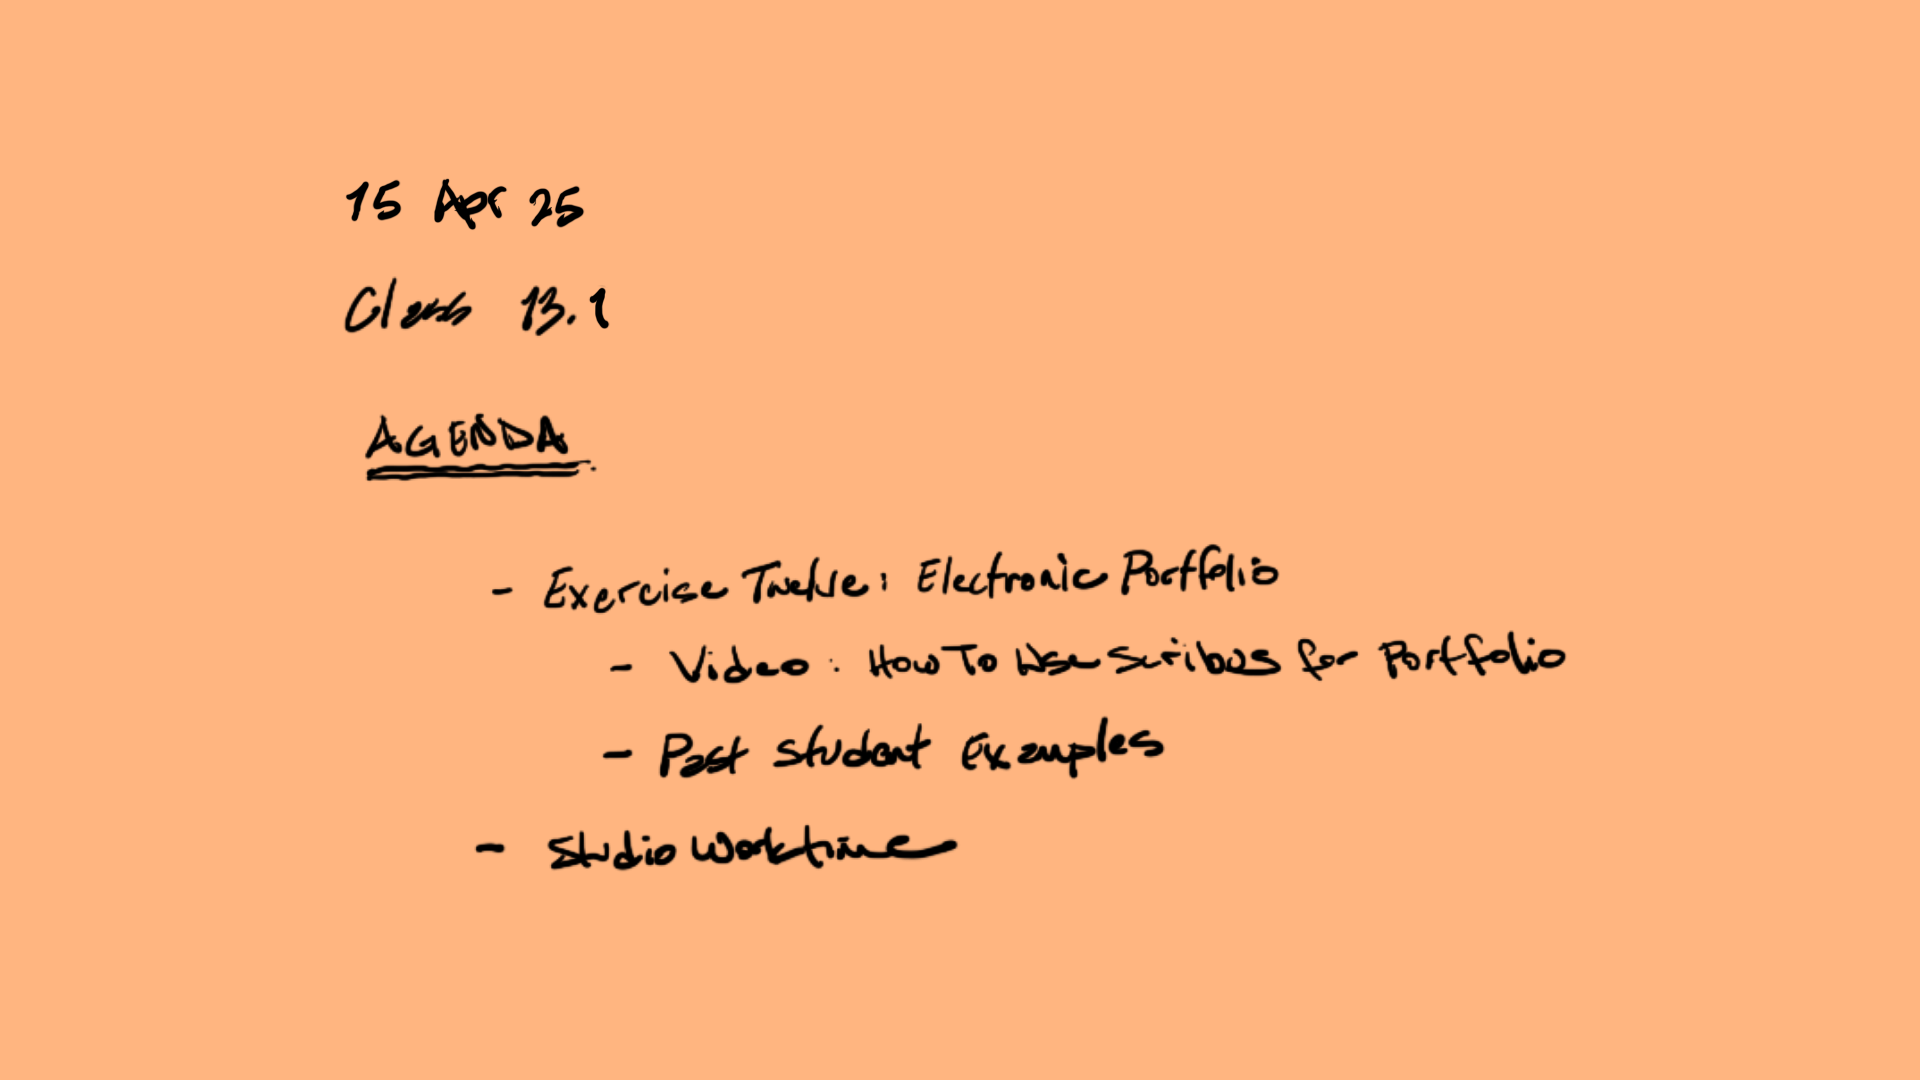 15 Apr 25
Class 13.1
AGENDA
- Exercise Twelve: Electronic Portfolio
- Video: How To Use Scribus for Portfolio
- Past Student Examples
- Studio Worktime